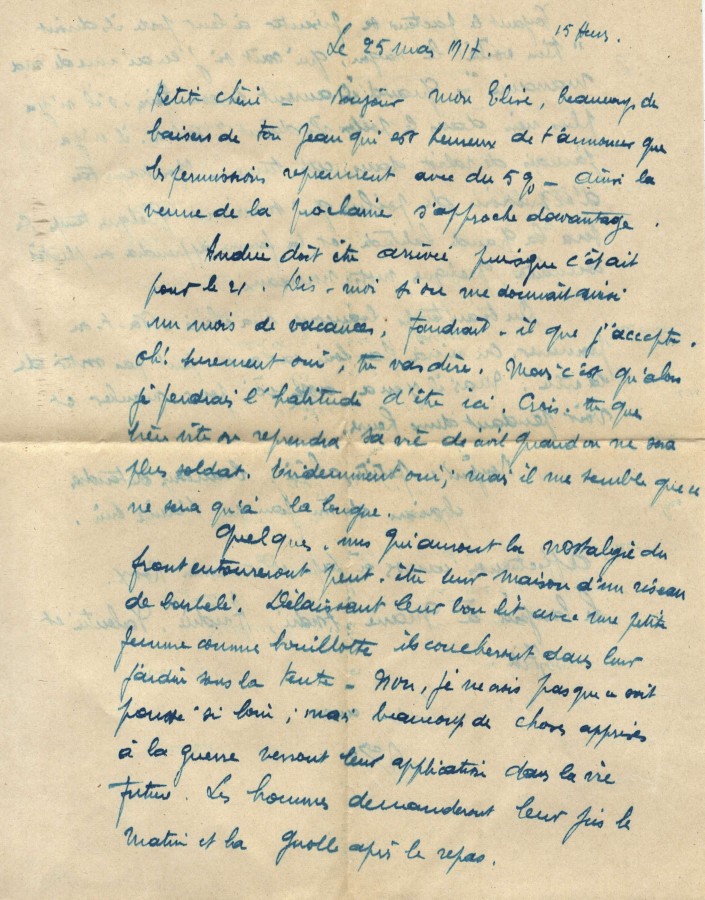 15 heures.
Le 25 mai 1917.
Petit chéri – Bonjour mon Elise, beaucoup de
baisers de ton Jean qui est heureux de t'annoncer que
les permissions reprennent avec du 5% – ainsi la
venue de la prochaine s'approche davantage.
André doit être arrivé puisque c'était
pour le 21. Dis-moi si on me donnait ainsi
un mois de vacances, faudrait-il que j'accepte.
oh! surement oui, tu vas dire. Mais c'est qu'alors
je perdrais l'habitude d'être ici. Crois-tu que
bien vite on reprendra sa vie de civil quand on ne sera
plus soldat. Evidemment oui; mais il me semble que ce
ne sera qu'à la longue.
Quelques-uns qui auront la nostalgie du
front entoureront peut-être leur maison d'un réseau
de barbelé. Délaissant leur bon lit avec une petite
femme comme bouillotte ils coucheront dans leur
jardin sous la tente – Non, je ne crois pas que ce soit
poussé si loin; mais beaucoup de choses apprises
à la guerre verront leur application dans la vie
future. Les hommes demanderont leur jus le
matin et la gnolle après le repas.